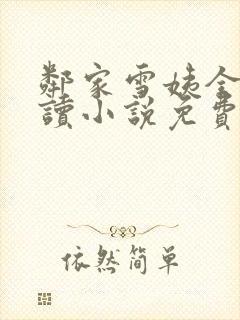 鄰家雪姨全
讀小說免費
依然簡單